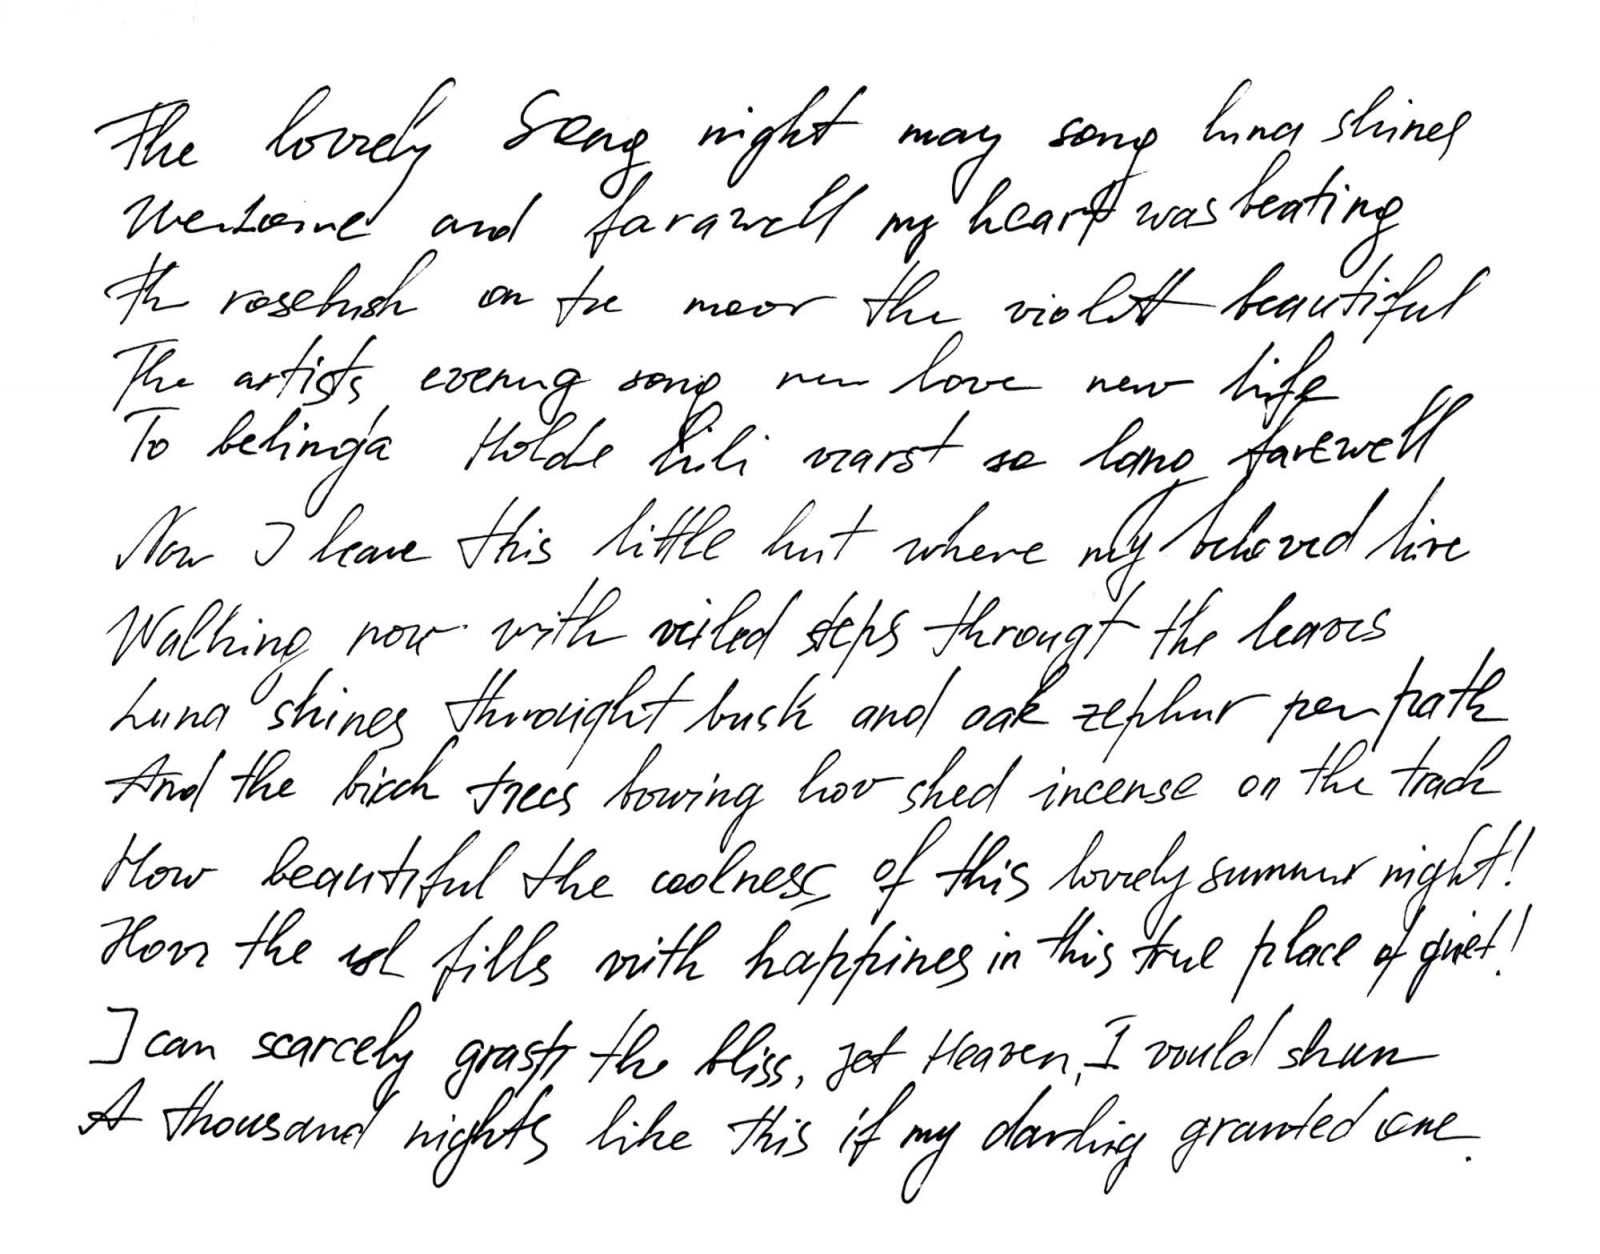 The lovely Song night may song luna shines
Welcome and farawell my heart was beating
Th rosebush on the moor the violett beautiful
The artists evening song new love new life
To belinda Holde Lili warst so lang farewell
Now I leave this little hut where my beloved live
Walking now with veiled steps througt the leaves
Luna shines throught busk and oak zephur per path
And the birch trees bowing how shed incense on the track
How beautiful the coolness of this lovely summur night!
How the fills with happines in this true place of quiet!
I can scarcely grasp the bliss, jet Heaven, I would shun
A thousand nights like this if my darling granted one.